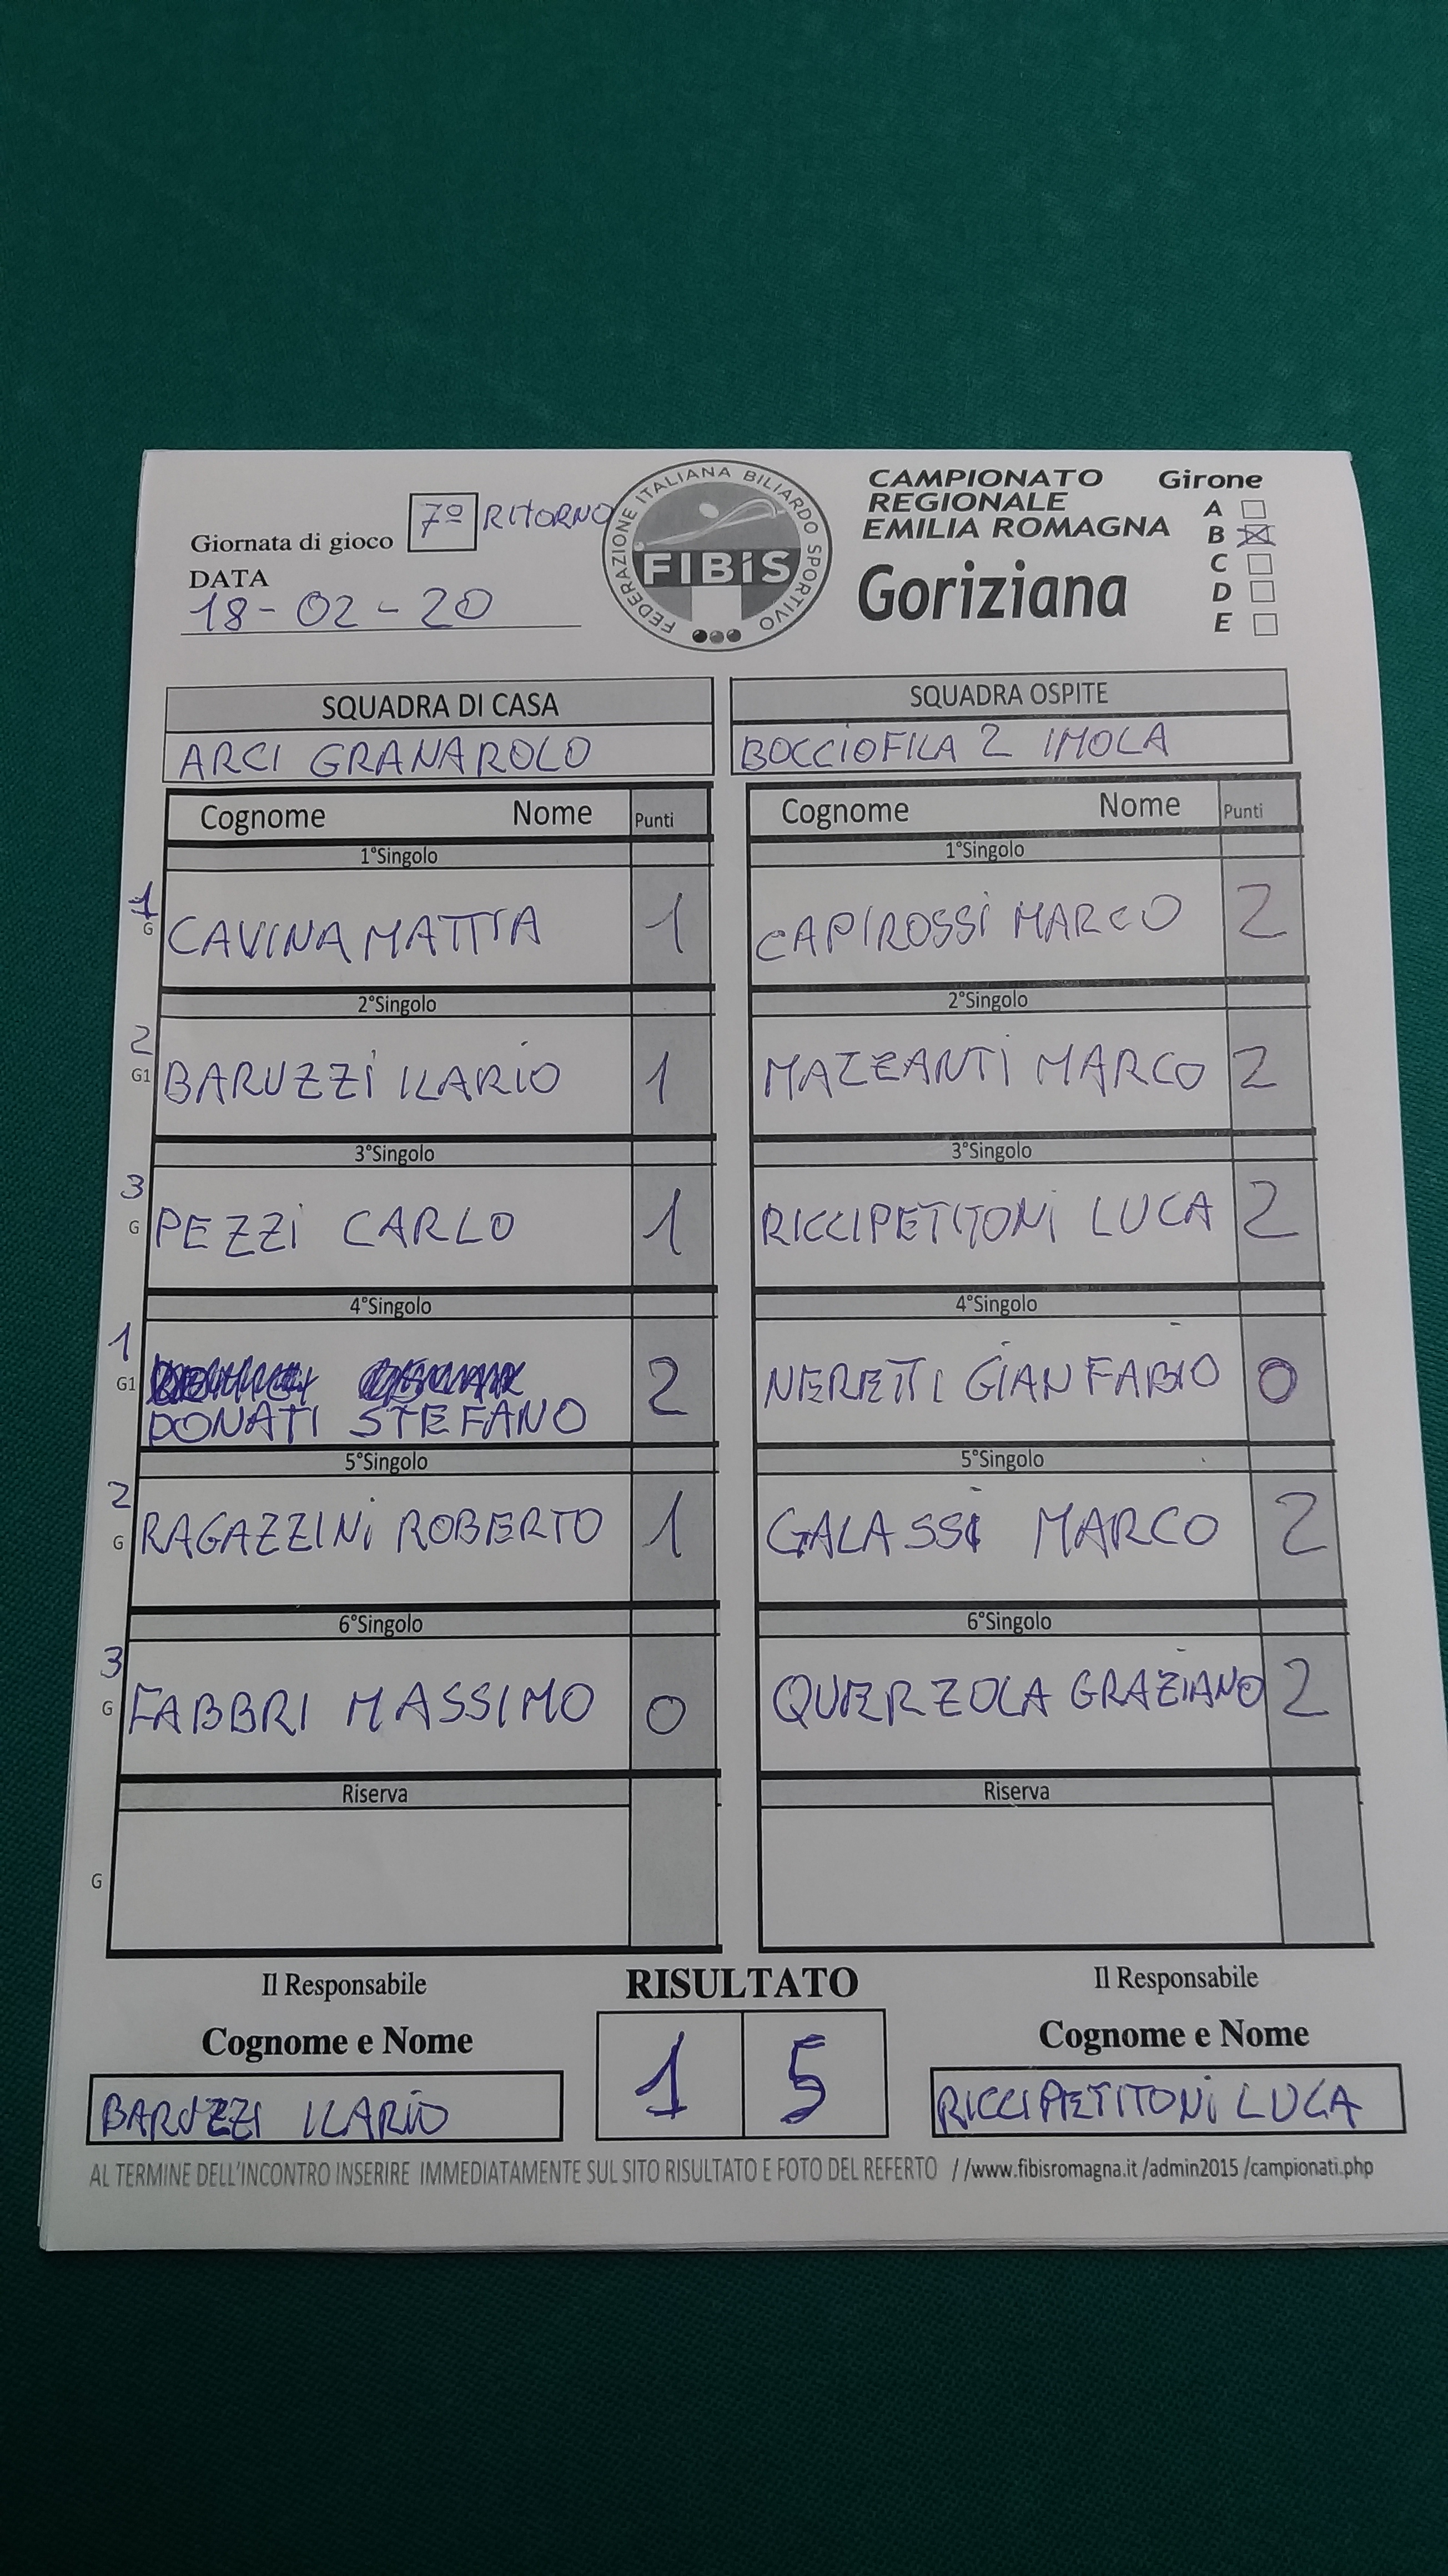 7º RITORNO
Giornata di gioco
DATA
18-02-20
FEDERAZIONE ITALIANA BILIARDO SPORTIVO
FIBiS
CAMPIONATO
REGIONALE
EMILIA ROMAGNA
Goriziana
Girone
A
B
C
D
E
SQUADRA DI CASA
ARCI GRANAROLO
SQUADRA OSPITE
BOCCIOFILA 2 IMOLA
Cognome Nome Punti
Cognome Nome Punti
1°Singolo
1°Singolo
1 G CAVINA MATTIA 1
CAPIROSSI MARCO 2
2°Singolo
2°Singolo
2 G1 BARUZZI ILARIO 1
MAZZANTI MARCO 2
3°Singolo
3°Singolo
3 G PEZZI CARLO 1
RICCIPETITONI LUCA 2
4°Singolo
4°Singolo
1 G1 DONATI STEFANO 2
NERETTI GIAN FABIO 0
5°Singolo
5°Singolo
2 G RAGAZZINI ROBERTO 1
GALASSI MARCO 2
6°Singolo
6°Singolo
3 G FABBRI MASSIMO 0
QUERZOLA GRAZIANO 2
Riserva
Riserva
G
Il Responsabile
Cognome e Nome
BARUZZI ILARIO
RISULTATO
1 5
Il Responsabile
Cognome e Nome
RICCIPETITONI LUCA
AL TERMINE DELL'INCONTRO INSERIRE IMMEDIATAMENTE SUL SITO RISULTATO E FOTO DEL REFERTO //www.fibisromagna.it /admin2015 /campionati.php